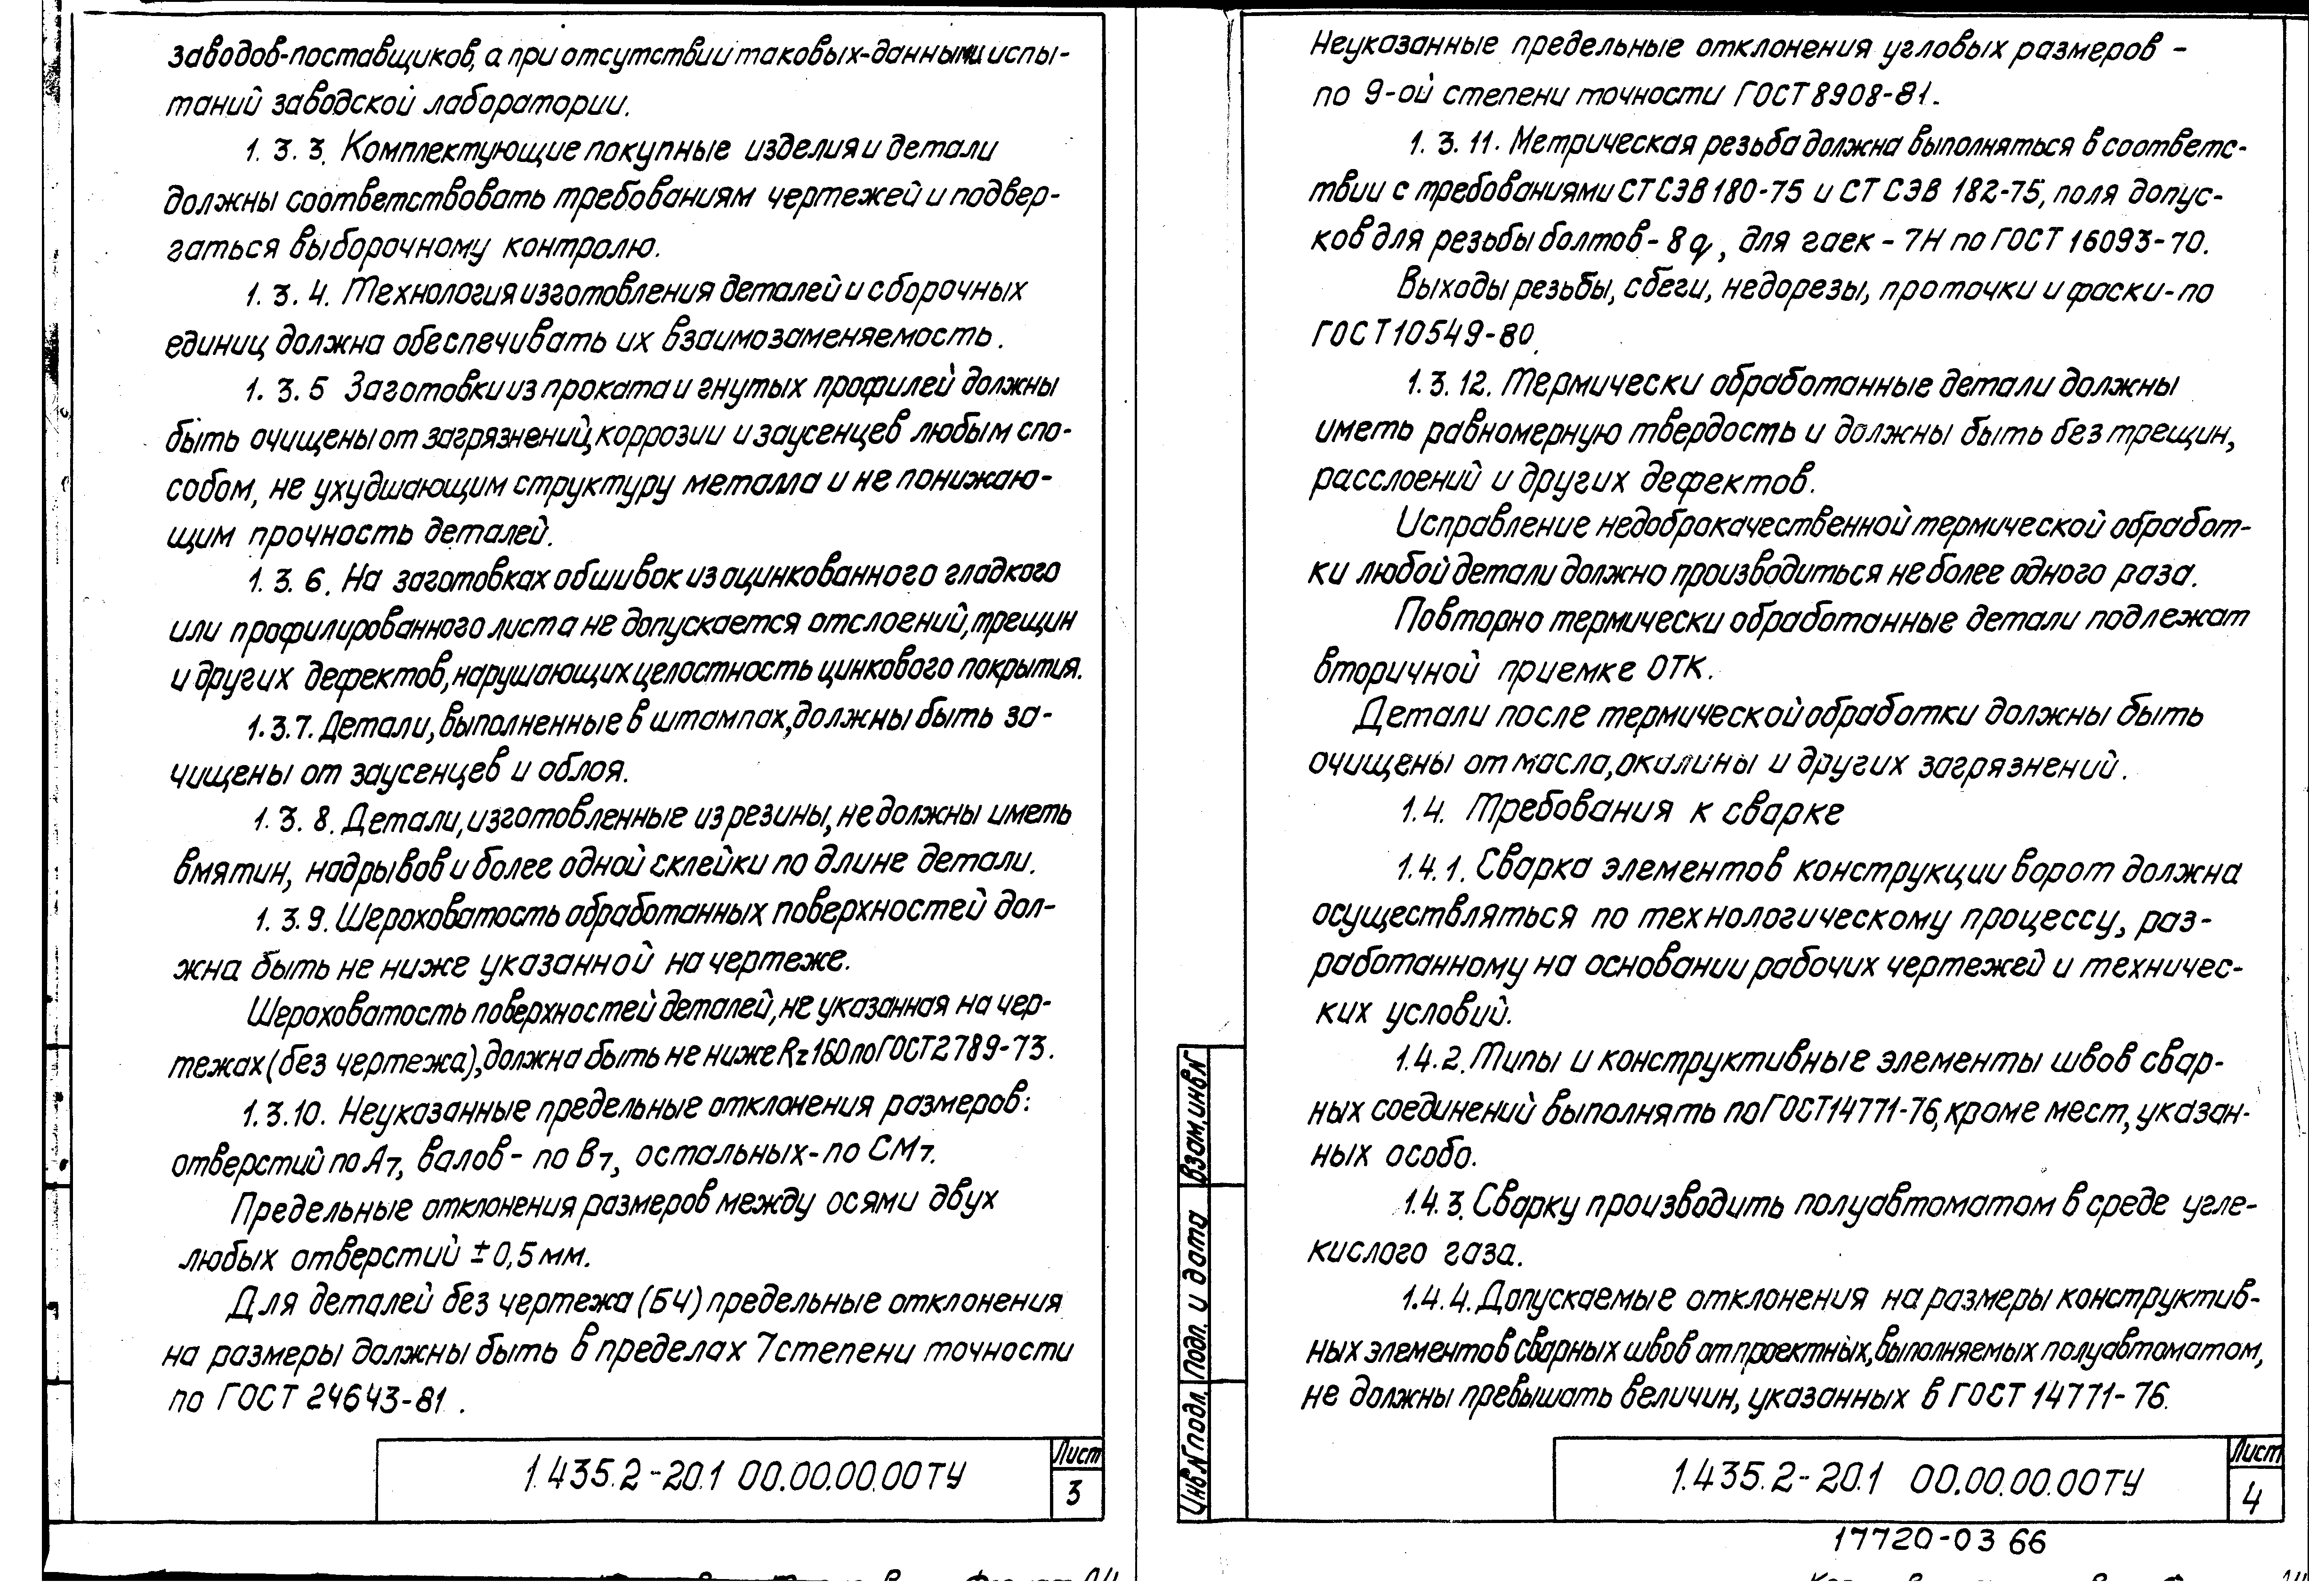 заводов-поставщиков, а при отсутствии таковых-данными испы-
таний заводской лаборатории.
1.3.3. Комплектующие покупные изделия и детали
должны соответствовать требованиям чертежей и подвер-
гаться выборочному контролю.
1.3.4. Технология изготовления деталей и сборочных
единиц должна обеспечивать их взаимозаменяемость.
1.3.5 Заготовки из проката и гнутых профилей должны
быть очищены от загрязнений, коррозии и заусенцев любым спо-
собом, не ухудшающим структуру металла и не понижаю-
щим прочность деталей.
1.3.6. На заготовках обшивок из оцинкованного гладкого
или профилированного листа не допускается отслоений, трещин
и других дефектов, нарушающих целостность цинкового покрытия.
1.3.7. Детали, выполненные в штампах, должны быть за-
чищены от заусенцев и облоя.
1.3.8. Детали, изготовленные из резины, не должны иметь
вмятин, надрывов и более одной склейки по длине детали.
1.3.9. Шероховатость обработанных поверхностей дол-
жна быть не ниже указанной на чертеже.
Шероховатость поверхностей деталей, не указанная на чер-
тежах (без чертежа), должна быть не ниже Rz 160 по ГОСТ 2789-73.
1.3.10. Неуказанные предельные отклонения размеров:
отверстий по А7, валов - по В7, остальных - по СМ7.
Предельные отклонения размеров между осями двух
любых отверстий ± 0,5 мм.
Для деталей без чертежа (БЧ) предельные отклонения
на размеры должны быть в пределах 7 степени точности
по ГОСТ 24643-81.
1.435.2-20.1 00.00.00.00ТУ
Лист
3
Неуказанные предельные отклонения угловых размеров -
по 9-ой степени точности ГОСТ 8908-81.
1.3.11. Метрическая резьба должна выполняться в соответс-
твии с требованиями СТ СЭВ 180-75 и СТ СЭВ 182-75, поля допус-
ков для резьбы болтов - 8g, для гаек - 7Н по ГОСТ 16093-70.
Выходы резьбы, сбеги, недорезы, проточки и фаски - по
ГОСТ 10549-80.
1.3.12. Термически обработанные детали должны
иметь равномерную твердость и должны быть без трещин,
расслоений и других дефектов.
Исправление недоброкачественной термической обработ-
ки любой детали должно производиться не более одного раза.
Повторно термически обработанные детали подлежат
вторичной приемке ОТК.
Детали после термической обработки должны быть
очищены от масла, окалины и других загрязнений.
1.4. Требования к сварке
1.4.1. Сварка элементов конструкции ворот должна
осуществляться по технологическому процессу, раз-
работанному на основании рабочих чертежей и техничес-
ких условий.
1.4.2. Типы и конструктивные элементы швов свар-
ных соединений выполнять по ГОСТ 14771-76, кроме мест, указан-
ных особо.
1.4.3. Сварку производить полуавтоматом в среде угле-
кислого газа.
1.4.4. Допускаемые отклонения на размеры конструктив-
ных элементов сварных швов от проектных, выполняемых полуавтоматом,
не должны превышать величин, указанных в ГОСТ 14771-76.
Взам. инв N
Подп. и дата
Инв. N подл.
1.435.2-20.1 00.00.00.00ТУ
Лист
4
17720-03 66